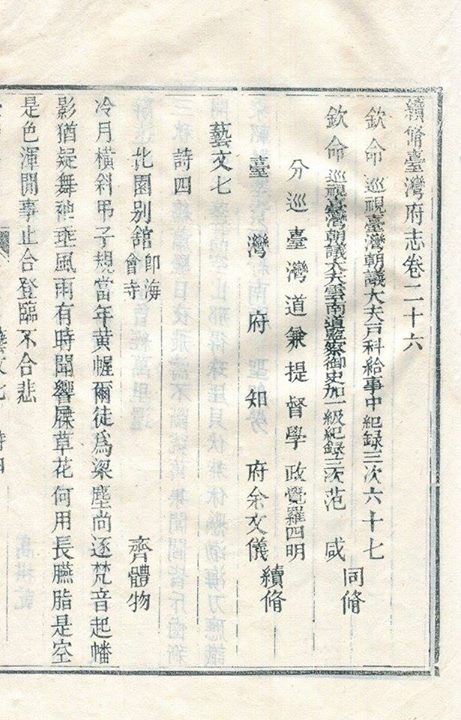 續脩臺灣府志卷二十六
欽命巡視臺灣朝議大夫戶科給事中紀錄三次六十七
欽命巡視臺灣朝議大夫雲南道監察御史加一級紀錄三次范咸 同脩
分巡臺灣道兼提督學政覺羅四明
臺灣府知府余文儀 續脩
藝文七
詩四
北園别舘即海會寺 齊體物
冷月橫斜弔子規當年黄幄爾徒爲梁塵尚逐梵音起幡
影猶疑舞袖乘風雨有時聞響屧草花何用長臙脂是空
是色渾閒事止合登臨不合悲